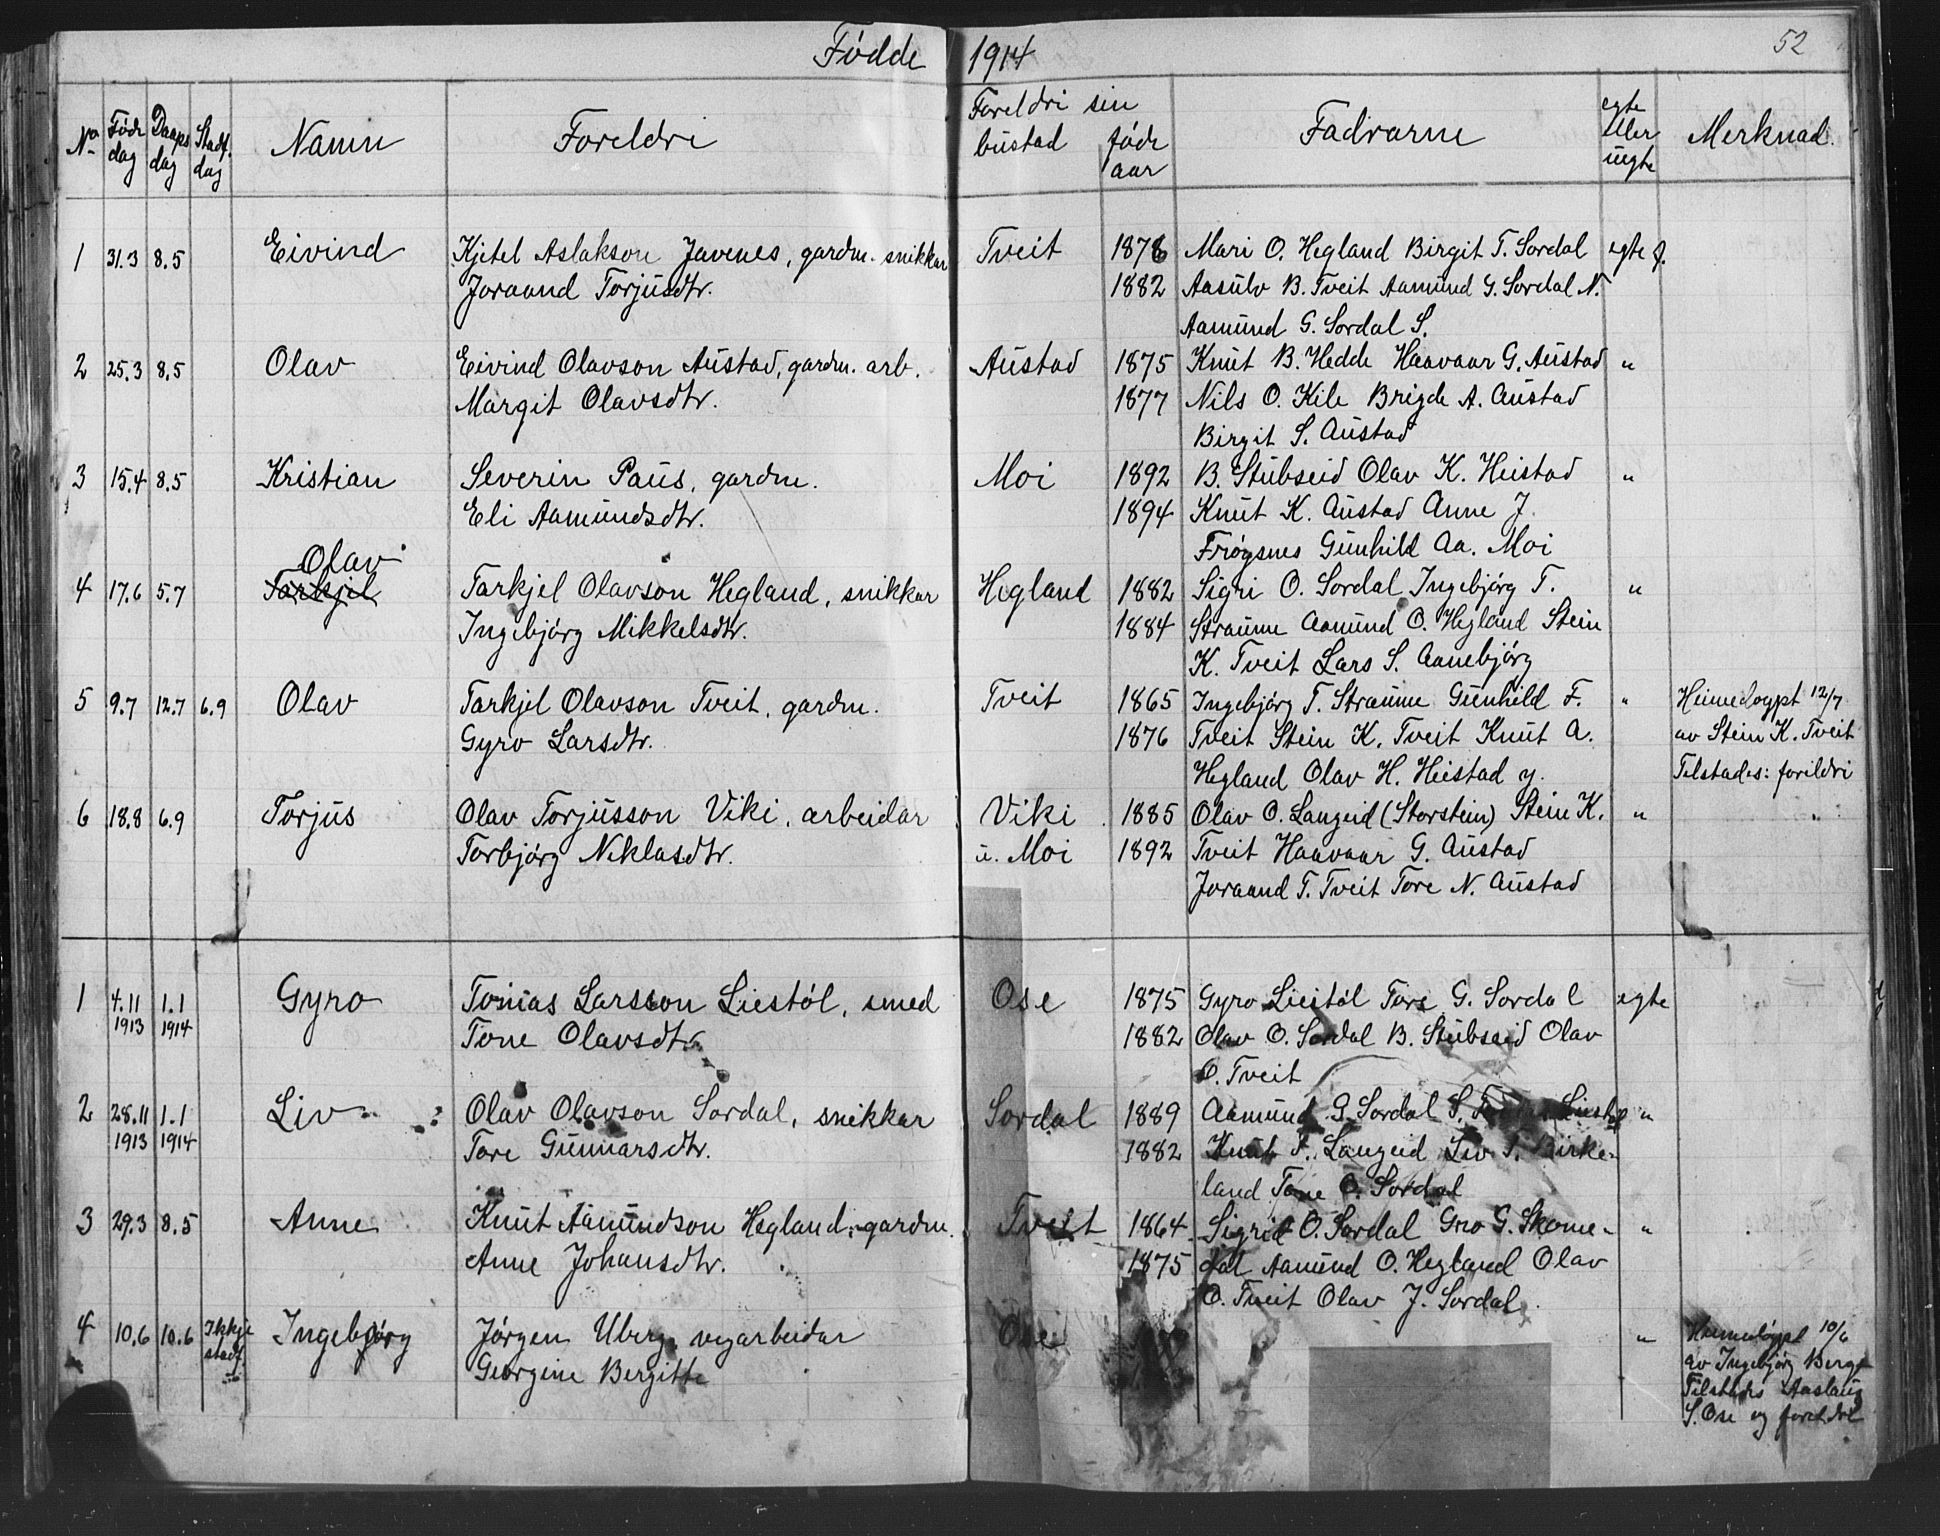 Fødde 1914
52
No Føde dag Daaps dag Stadf. dag Namn Foreldri Foreldri sin bustad føde aar Fadrarne egte eller uegte Merknad.
1 31.3 8.5 Eivind Kjetel Aslakson Javenes, gardm. snikkar Tveit 1876 Mari O. Hegland Birgit T. Sordal egte f.
Joraand Torjusdtr. 1882 Aasulv B. Tveit Aamund G. Sordal N.
Aamund G. Sordal S.
2 25.3 8.5 Olav Eivind Olavson Austad, gardm. arb. Austad 1875 Knut B. Hedde Haavaar G. Austad "
Margit Olavsdtr. 1877 Nils O. Kile Brigde A. Austad
Birgit S. Austad
3 15.4 8.5 Kristian Severin Paus, gardm. Moi 1892 B. Stubseid Olav K. Heistad "
Eli Aamundsdtr. 1894 Knut K. Austad Anne J.
Frøysnes Gunhild Aa. Moi
Olav
4 17.6 5.7 Tarkjel Tarkjel Olavson Hegland, snikkar Hegland 1882 Sigri O. Sordal Ingebjørg T. "
Ingebjørg Mikkelsdtr. 1884 Straume Aamund O. Hegland Stein
K. Tveit Lars S. Aanebjørg
5 9.7 12.7 6.9 Olav Tarkjel Olavson Tveit, gardm. Tveit 1865 Ingebjørg T. Straume Gunhild F. " Heimedøypt 12/7
Gyro Larsdtr. 1876 Tveit Stein K. Tveit Knut A. av Stein K. Tveit
Hegland Olav H. Heistad y. Tilstades: foreldri
6 18.8 6.9 Torjus Olav Torjusson Viki, arbeidar Viki 1885 Olav O. Langeid (Storstein) Stein K. "
Torbjørg Niklasdtr. u. Moi 1892 Tveit Haavaar G. Austad
Joraand T. Tveit Tore N. Austad
1 4.11 1913 1.1 1914 Gyro Tomas Larsson Liestøl, smed Ose 1875 Gyro Liestøl Tore G. Sordal egte
Tone Olavsdtr. 1882 Olav O. Sordal B. Stubseid Olav
O. Tveit
2 28.11 1913 1.1 1914 Liv Olav Olavson Sordal, snikkar Sordal 1889 Aamund G. Sordal S. Liestøl "
Tore Gunnarsdtr. 1882 Knut T. Langeid Liv T. Birke-
land Tone O. Sordal
3 29.3 8.5 Anne Knut Aamundson Hegland, gardm. Tveit 1864 Sigrid O. Sordal Gro G. Skome- "
Anne Johansdtr. 1875 dal Aamund O. Hegland Olav
O. Tveit Olav J. Sordal.
4 10.6 10.6 Ikkje stadf. Ingebjørg Jørgen Uberg, vegarbeidar Ose " Heimedøypt 10/6
Georgine Bergitte av Ingebjørg Berge
Tilstades Aaslaug
S. Ose og foreldri